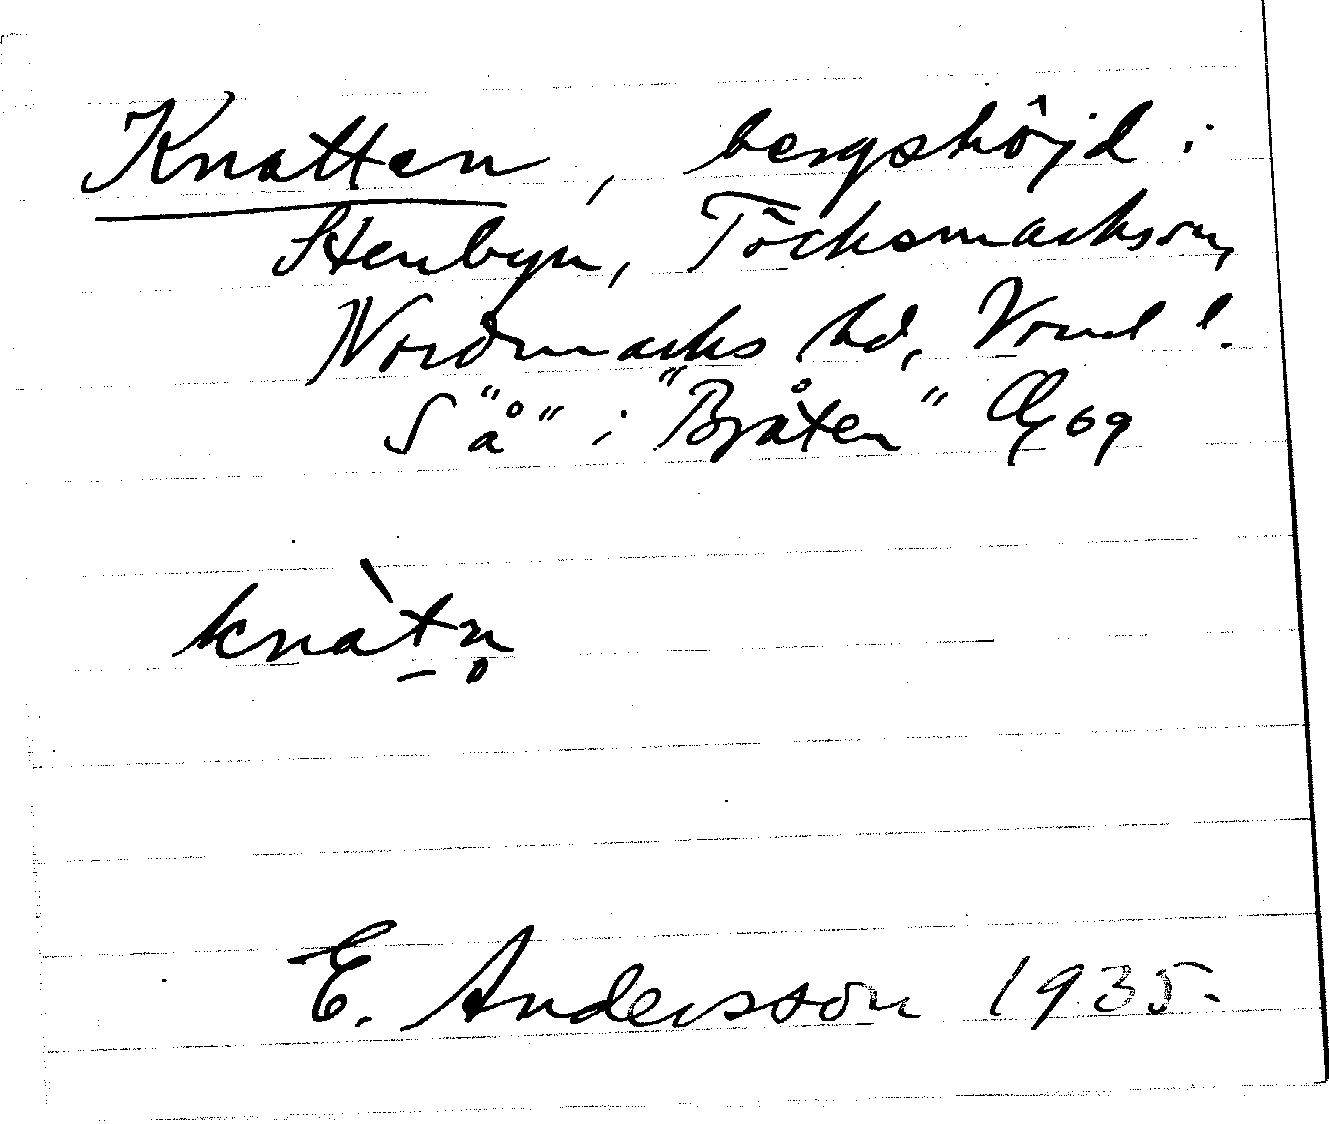 Knatten, bergshöjd i
Stenbyn, Töcksmarks sn,
Nordmarks hd, Vrml l.
S "å" i "Bråten" Œ 69
knàtn̥
E. Andersson 1935.